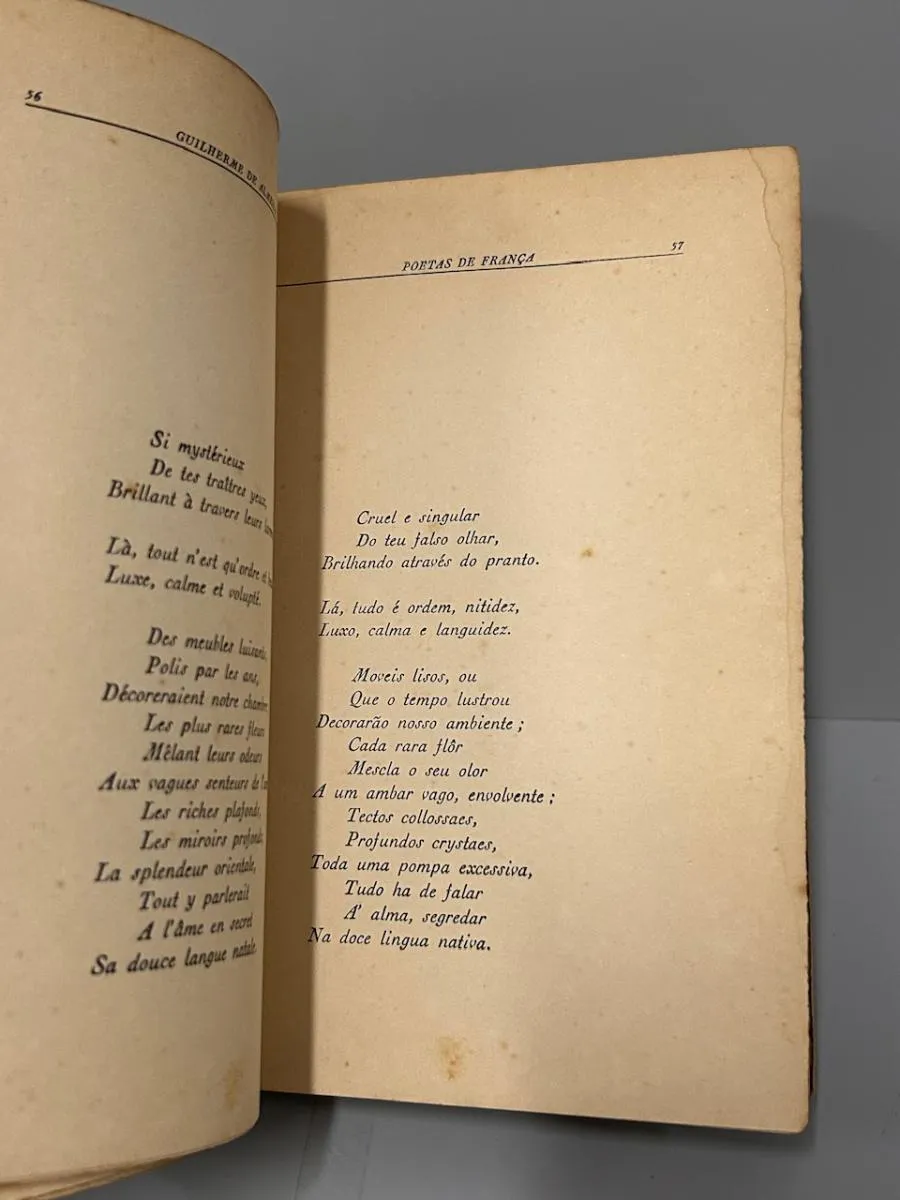 56
GUILHERME DE
Si mystérieux
De tes traîtres yeux,
Brillant à travers leurs
Là, tout n'est qu'ordre et
Luxe, calme et volupté.
Des meubles luisants,
Polis par les ans,
Décoreraient notre chambre
Les plus rares fleurs
Mêlant leurs odeurs
Aux vagues senteurs de
Les riches plafonds,
Les miroirs profonds,
La splendeur orientale,
Tout y parlerait
A l'âme en secret
Sa douce langue natale.
POETAS DE FRANÇA
57
Cruel e singular
Do teu falso olhar,
Brilhando através do pranto.
Lá, tudo é ordem, nitidez,
Luxo, calma e languidez.
Moveis lisos, ou
Que o tempo lustrou
Decorarão nosso ambiente;
Cada rara flôr
Mescla o seu olor
A um ambar vago, envolvente;
Tectos collossaes,
Profundos crystaes,
Toda uma pompa excessiva,
Tudo ha de falar
A' alma, segredar
Na doce lingua nativa.